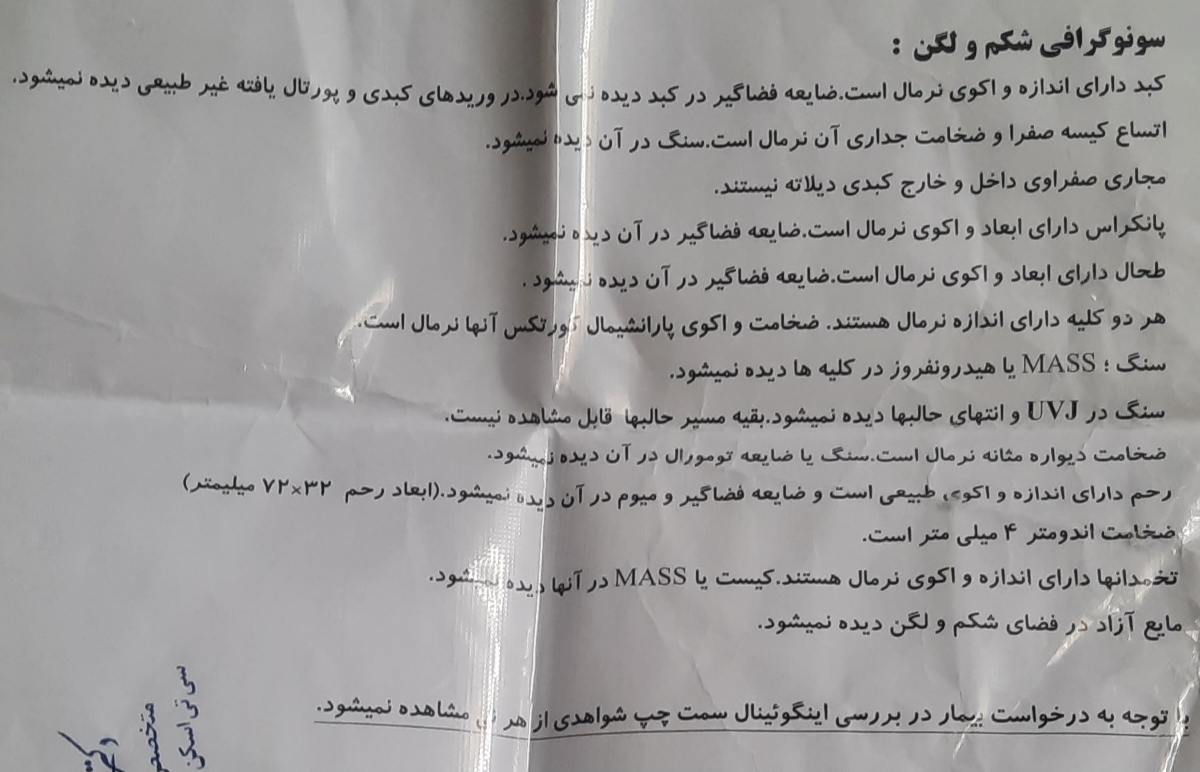 سونوگرافی شکم و لگن :
کبد دارای اندازه و اکوی نرمال است.ضایعه فضاگیر در کبد دیده نمی شود.در وریدهای کبدی و پورتال یافته غیر طبیعی دیده نمیشود.
اتساع کیسه صفرا و ضخامت جداری آن نرمال است.سنگ در آن دیده نمیشود.
مجاری صفراوی داخل و خارج کبدی دیلاته نیستند.
پانکراس دارای ابعاد و اکوی نرمال است.ضایعه فضاگیر در آن دیده نمیشود.
طحال دارای ابعاد و اکوی نرمال است.ضایعه فضاگیر در آن دیده نمیشود .
هر دو کلیه دارای اندازه نرمال هستند. ضخامت و اکوی پارانشیمال کورتکس آنها نرمال است.
سنگ ؛ MASS یا هیدرونفروز در کلیه ها دیده نمیشود.
سنگ در UVJ و انتهای حالبها دیده نمیشود.بقیه مسیر حالبها قابل مشاهده نیست.
ضخامت دیواره مثانه نرمال است.سنگ یا ضایعه تومورال در آن دیده نمیشود.
رحم دارای اندازه و اکوی طبیعی است و ضایعه فضاگیر و میوم در آن دیده نمیشود.(ابعاد رحم ۳۲×۷۲ میلیمتر)
ضخامت اندومتر ۴ میلی متر است.
تخمدانها دارای اندازه و اکوی نرمال هستند.کیست یا MASS در آنها دیده نمیشود.
مایع آزاد در فضای شکم و لگن دیده نمیشود.
با توجه به درخواست بیمار در بررسی اینگوئینال سمت چپ شواهدی از هر نی مشاهده نمیشود.
دکتر
متخصص
سی تی اسکن